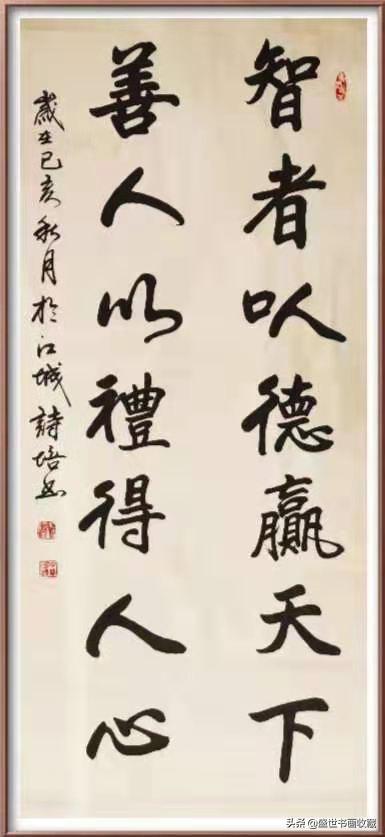 智者以德贏天下
善人以禮得人心
歲在己亥秋月於江城詩培書
头条@盛世书画收藏